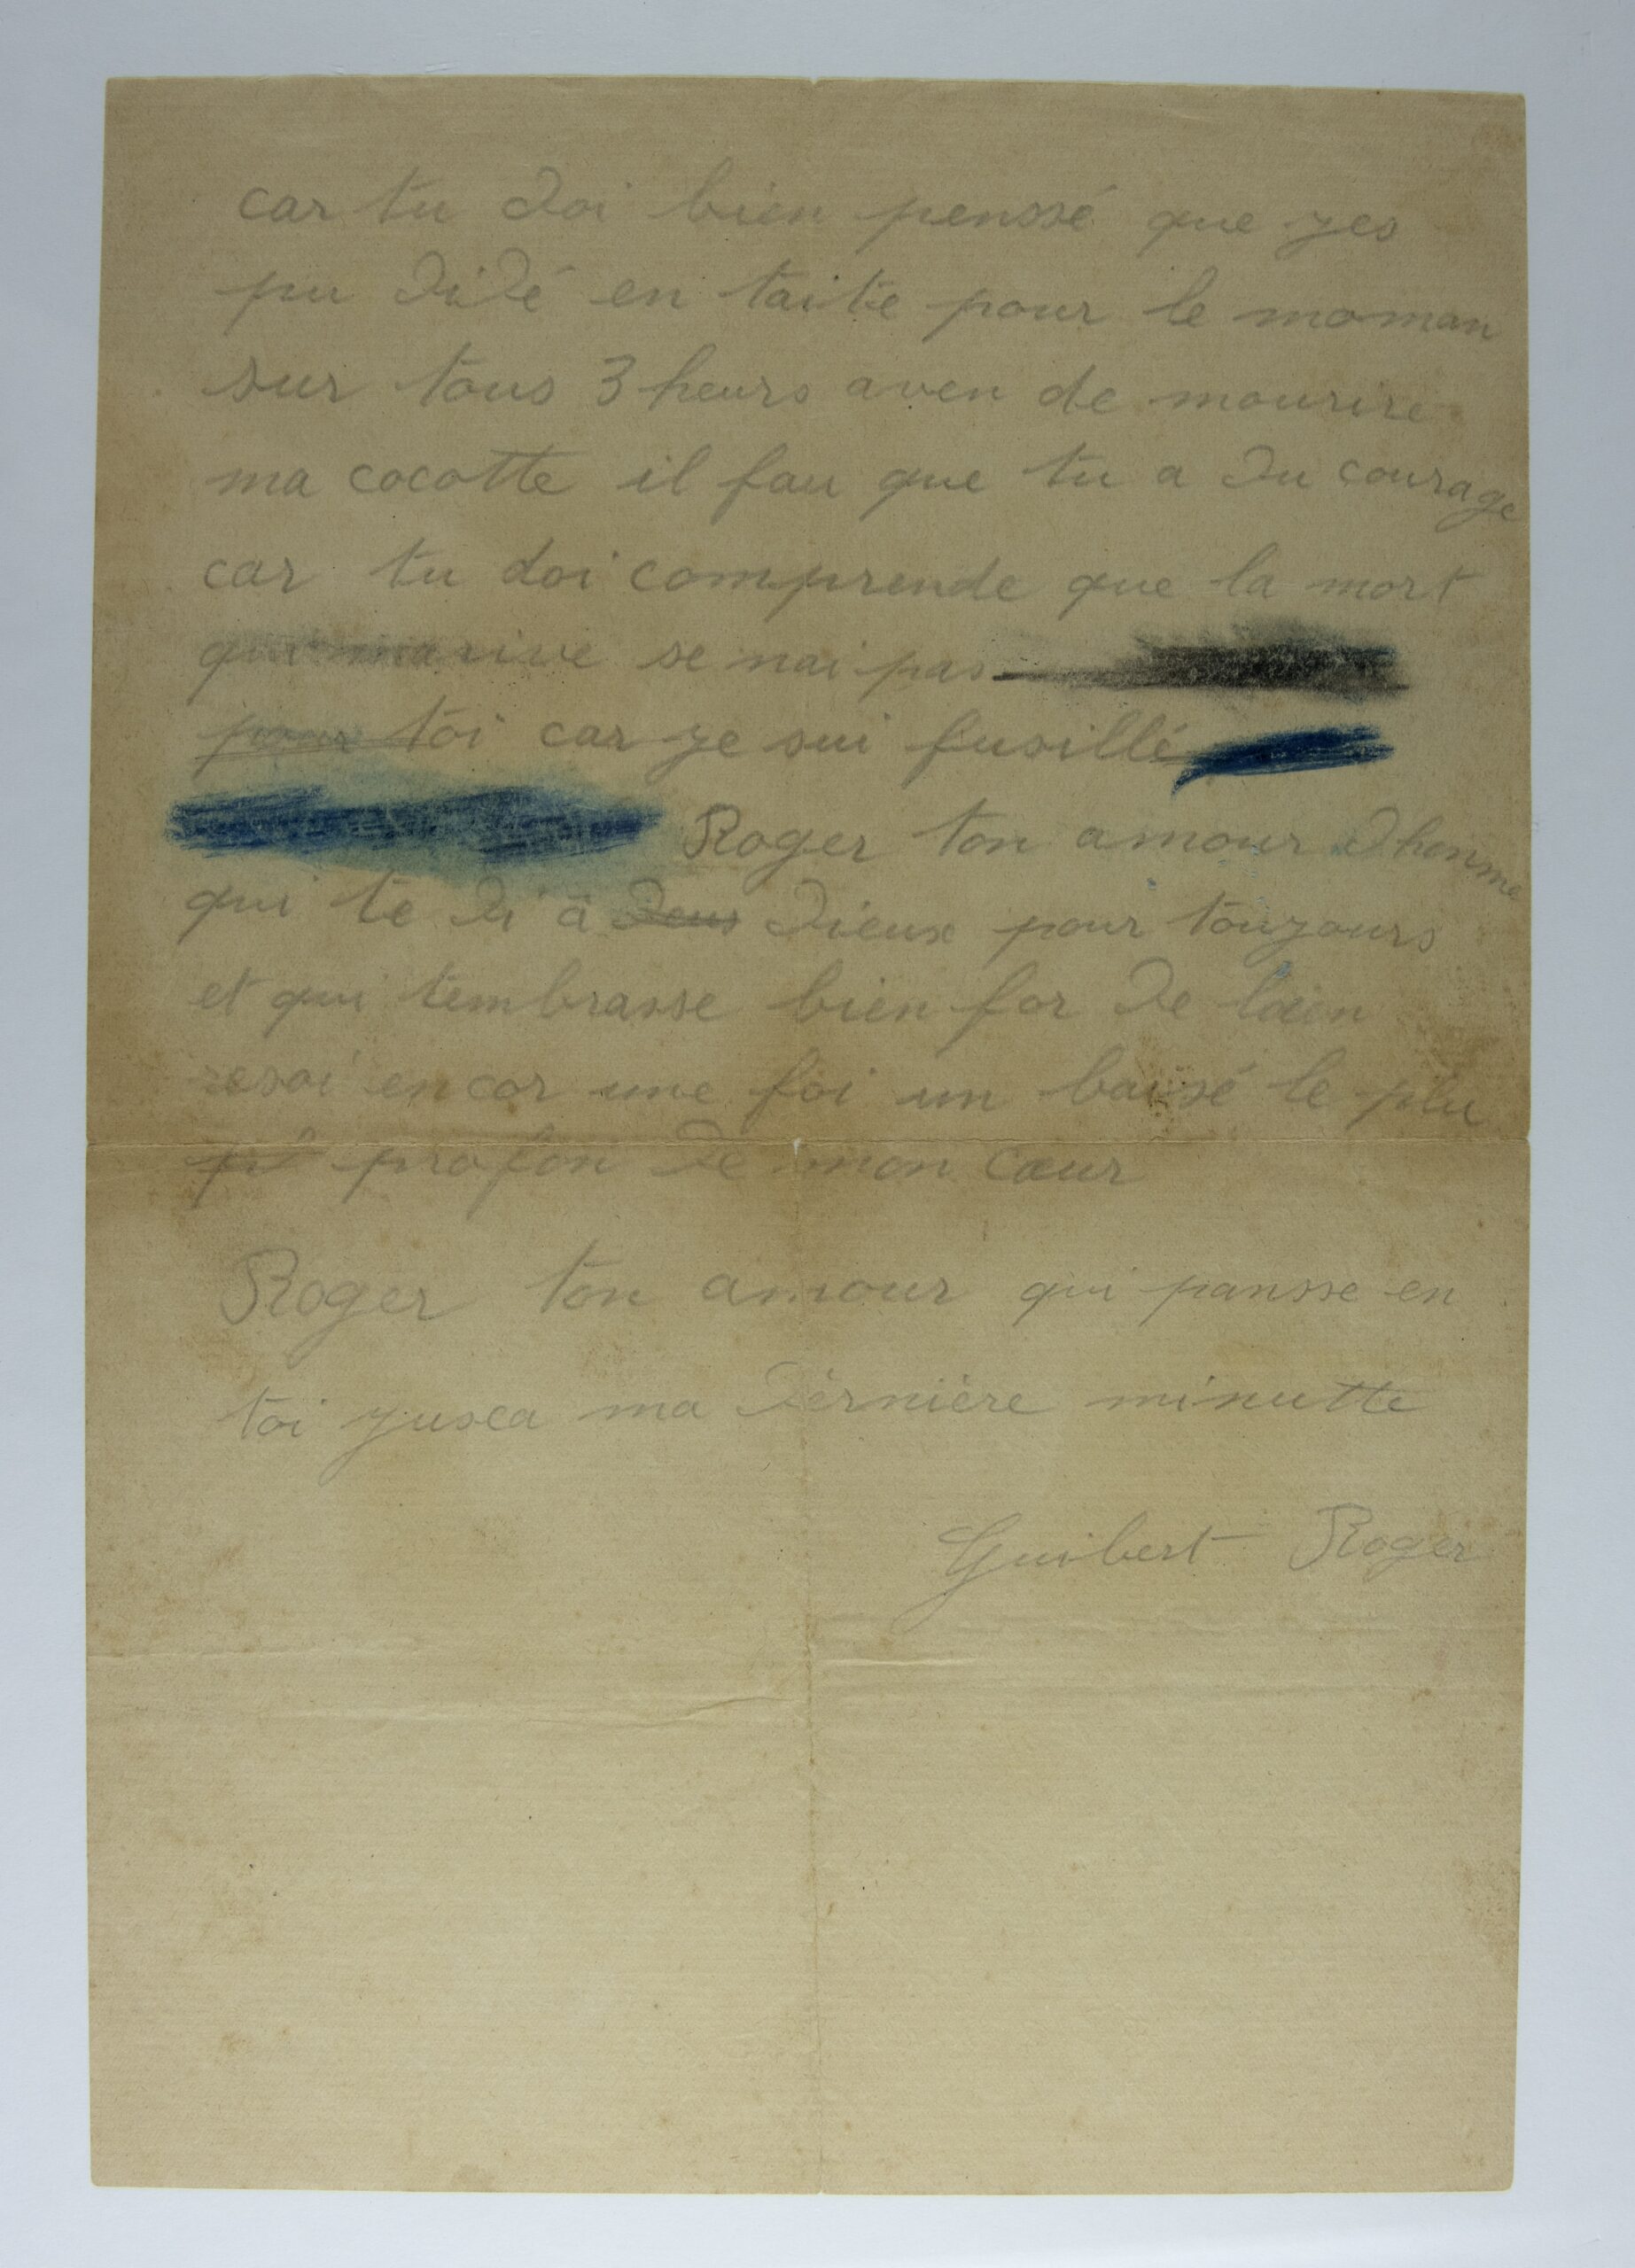 car tu doi bien penssé que yes
pu didé en taite pour le moman
sur tous 3 heurs aven de mourire
ma cocotte il fau que tu a du courage
car tu doi comprende que la mort
qui marive se nai pas
pour toi car je sui fusillé
Roger ton amour d'homme
qui te di à deus dieux pour toujours
et qui tembrasse bien for de loin
resoi encor une foi un baisé le plu
pl profon de mon cœur
Roger ton amour qui pansse en
toi jusca ma dèrnière minutte
Guibert Roger